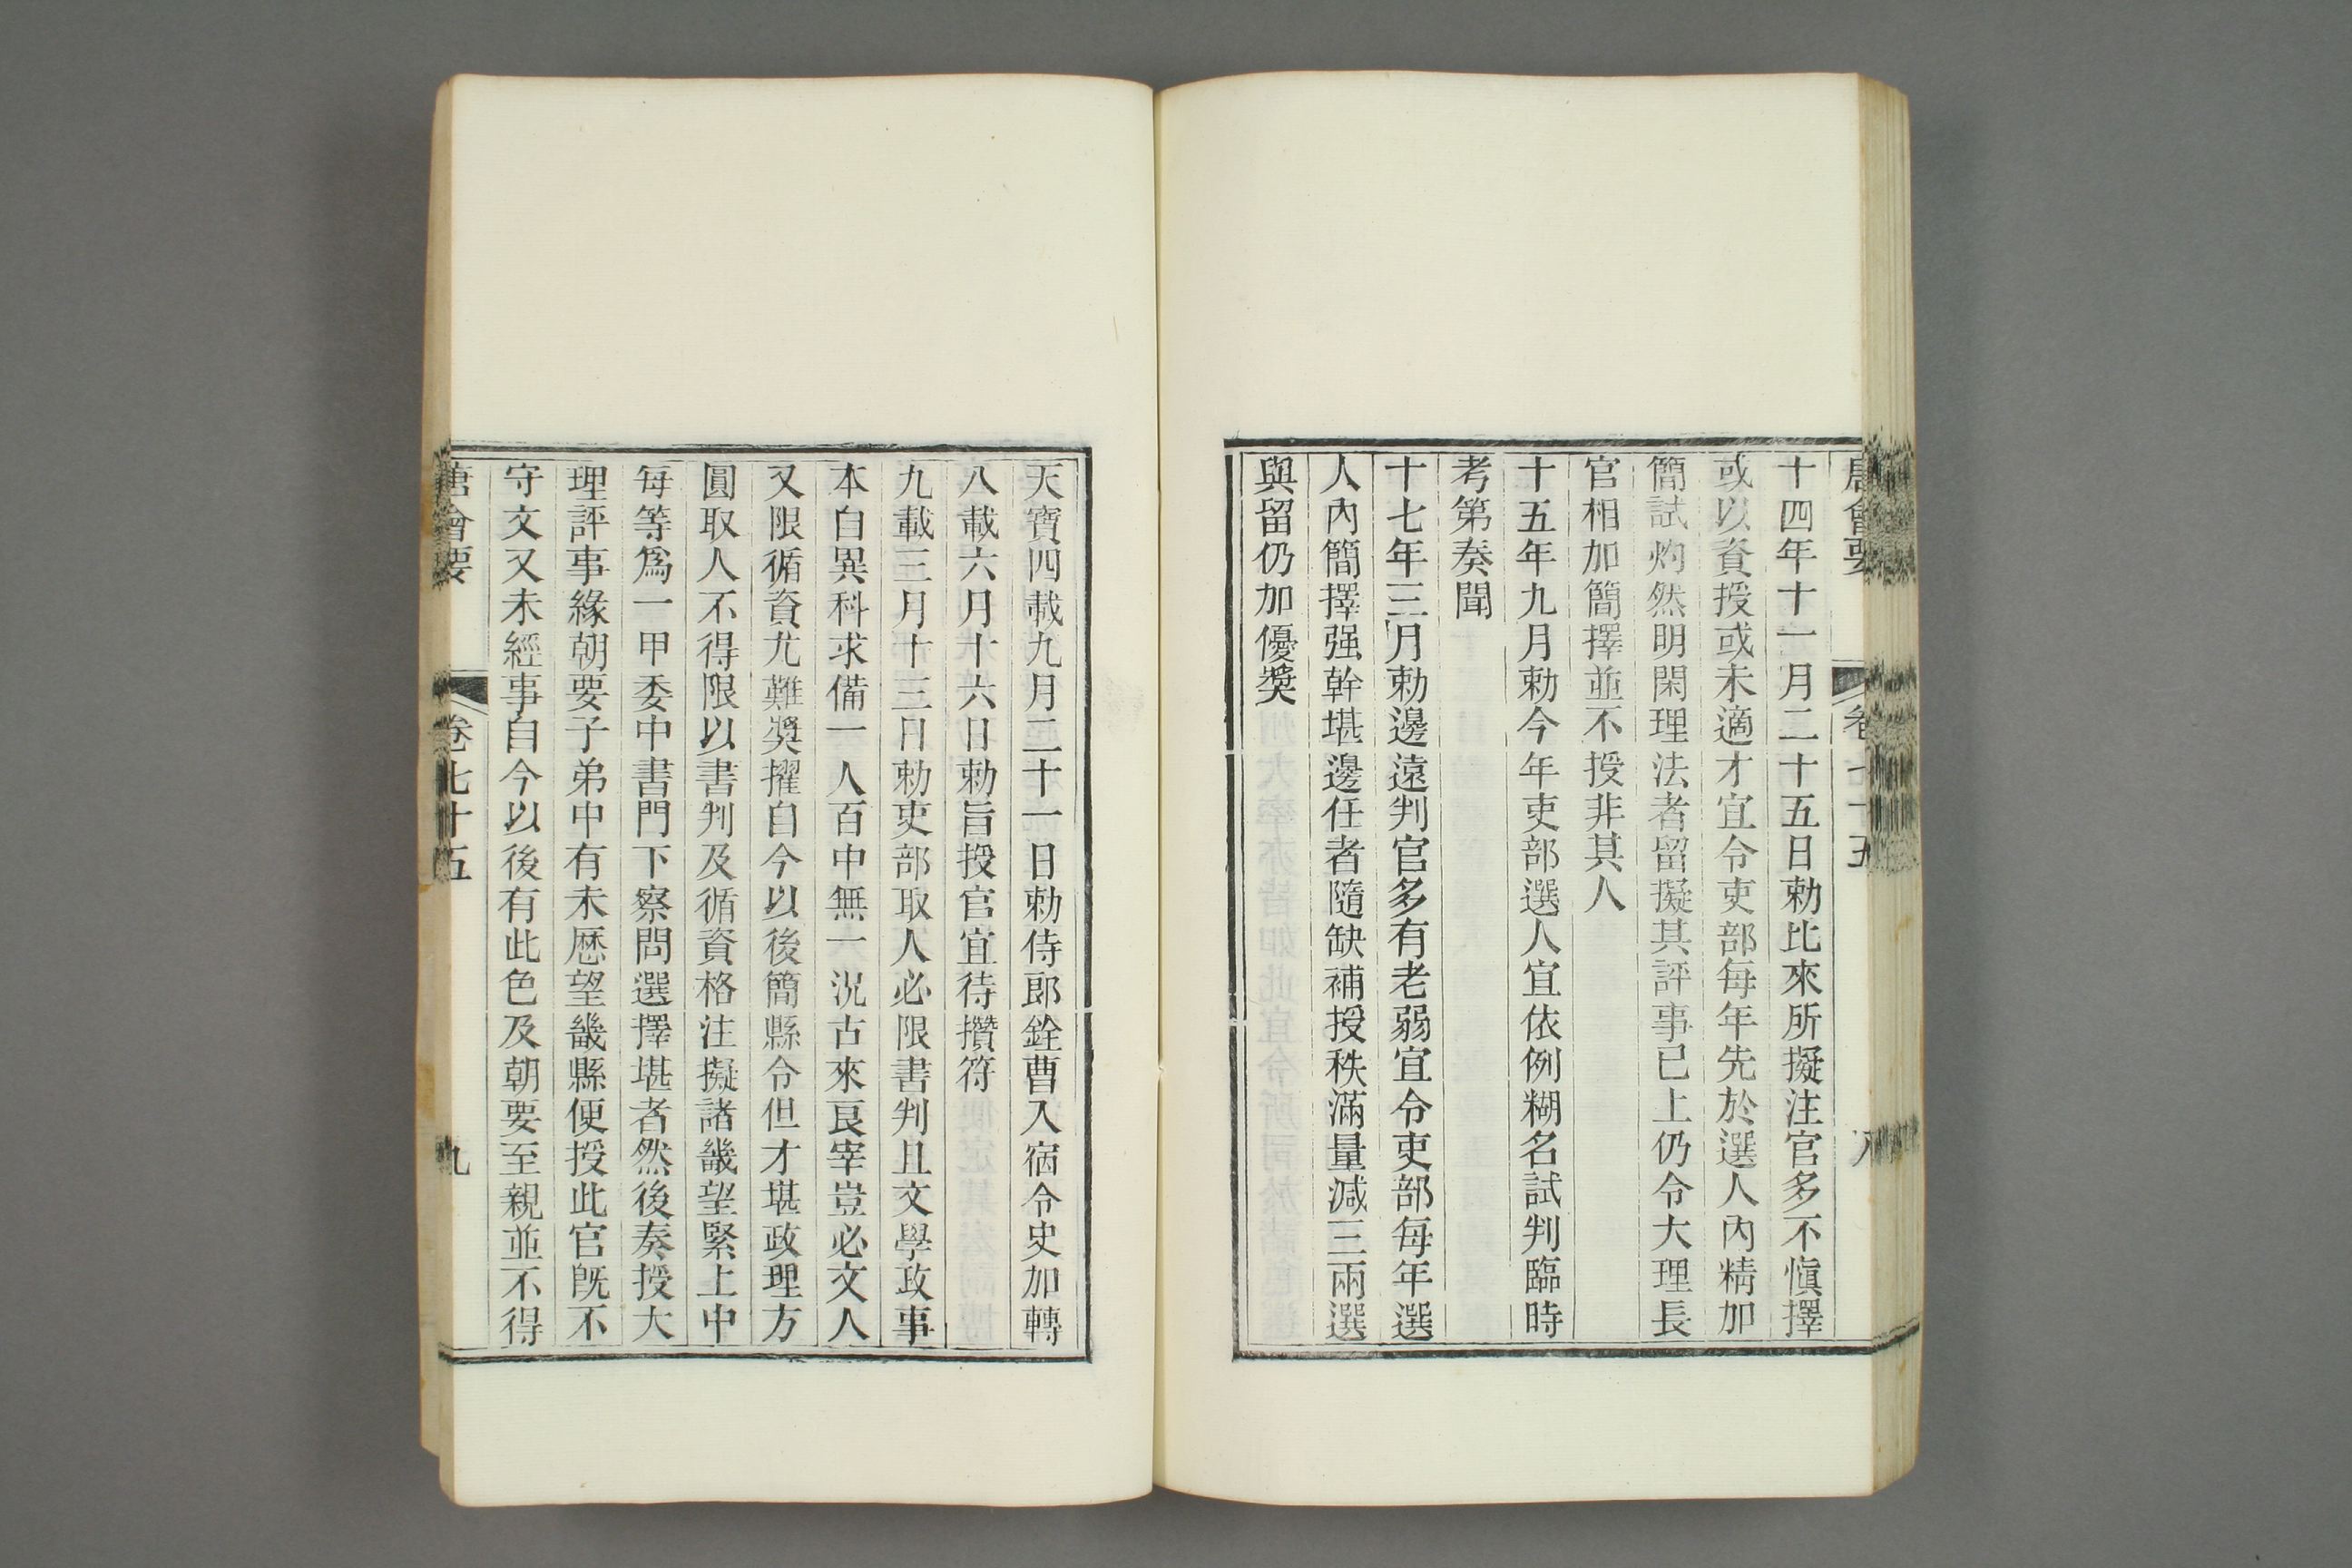 唐會要 卷七十五 八
十四年十一月二十五日勅比來所擬注官多不慎擇
或以資授或未適才宜令吏部每年先於選人內精加
簡試灼然明閑理法者留擬其評事已上仍令大理長
官相加簡擇並不授非其人
十五年九月勅今年吏部選人宜依例糊名試判臨時
考第奏聞
十七年三月勅邊遠判官多有老弱宜令吏部每年選
人內簡擇强幹堪邊任者隨缺補授秩滿量減三兩選
與留仍加優獎
天寶四載九月二十一日勅侍郎銓曹入宿令史加轉
八載六月十六日勅旨授官宜待攢符
九載三月十三日勅吏部取人必限書判且文學政事
本自異科求備一人百中無一況古來良宰豈必文人
又限循資尤難獎擢自今以後簡縣令但才堪政理方
圓取人不得限以書判及循資格注擬諸畿望緊上中
每等爲一甲委中書門下察問選擇堪者然後奏授大
理評事緣朝要子弟中有未歷望畿縣便授此官既不
守文又未經事自今以後有此色及朝要至親並不得
唐會要 卷七十五 九